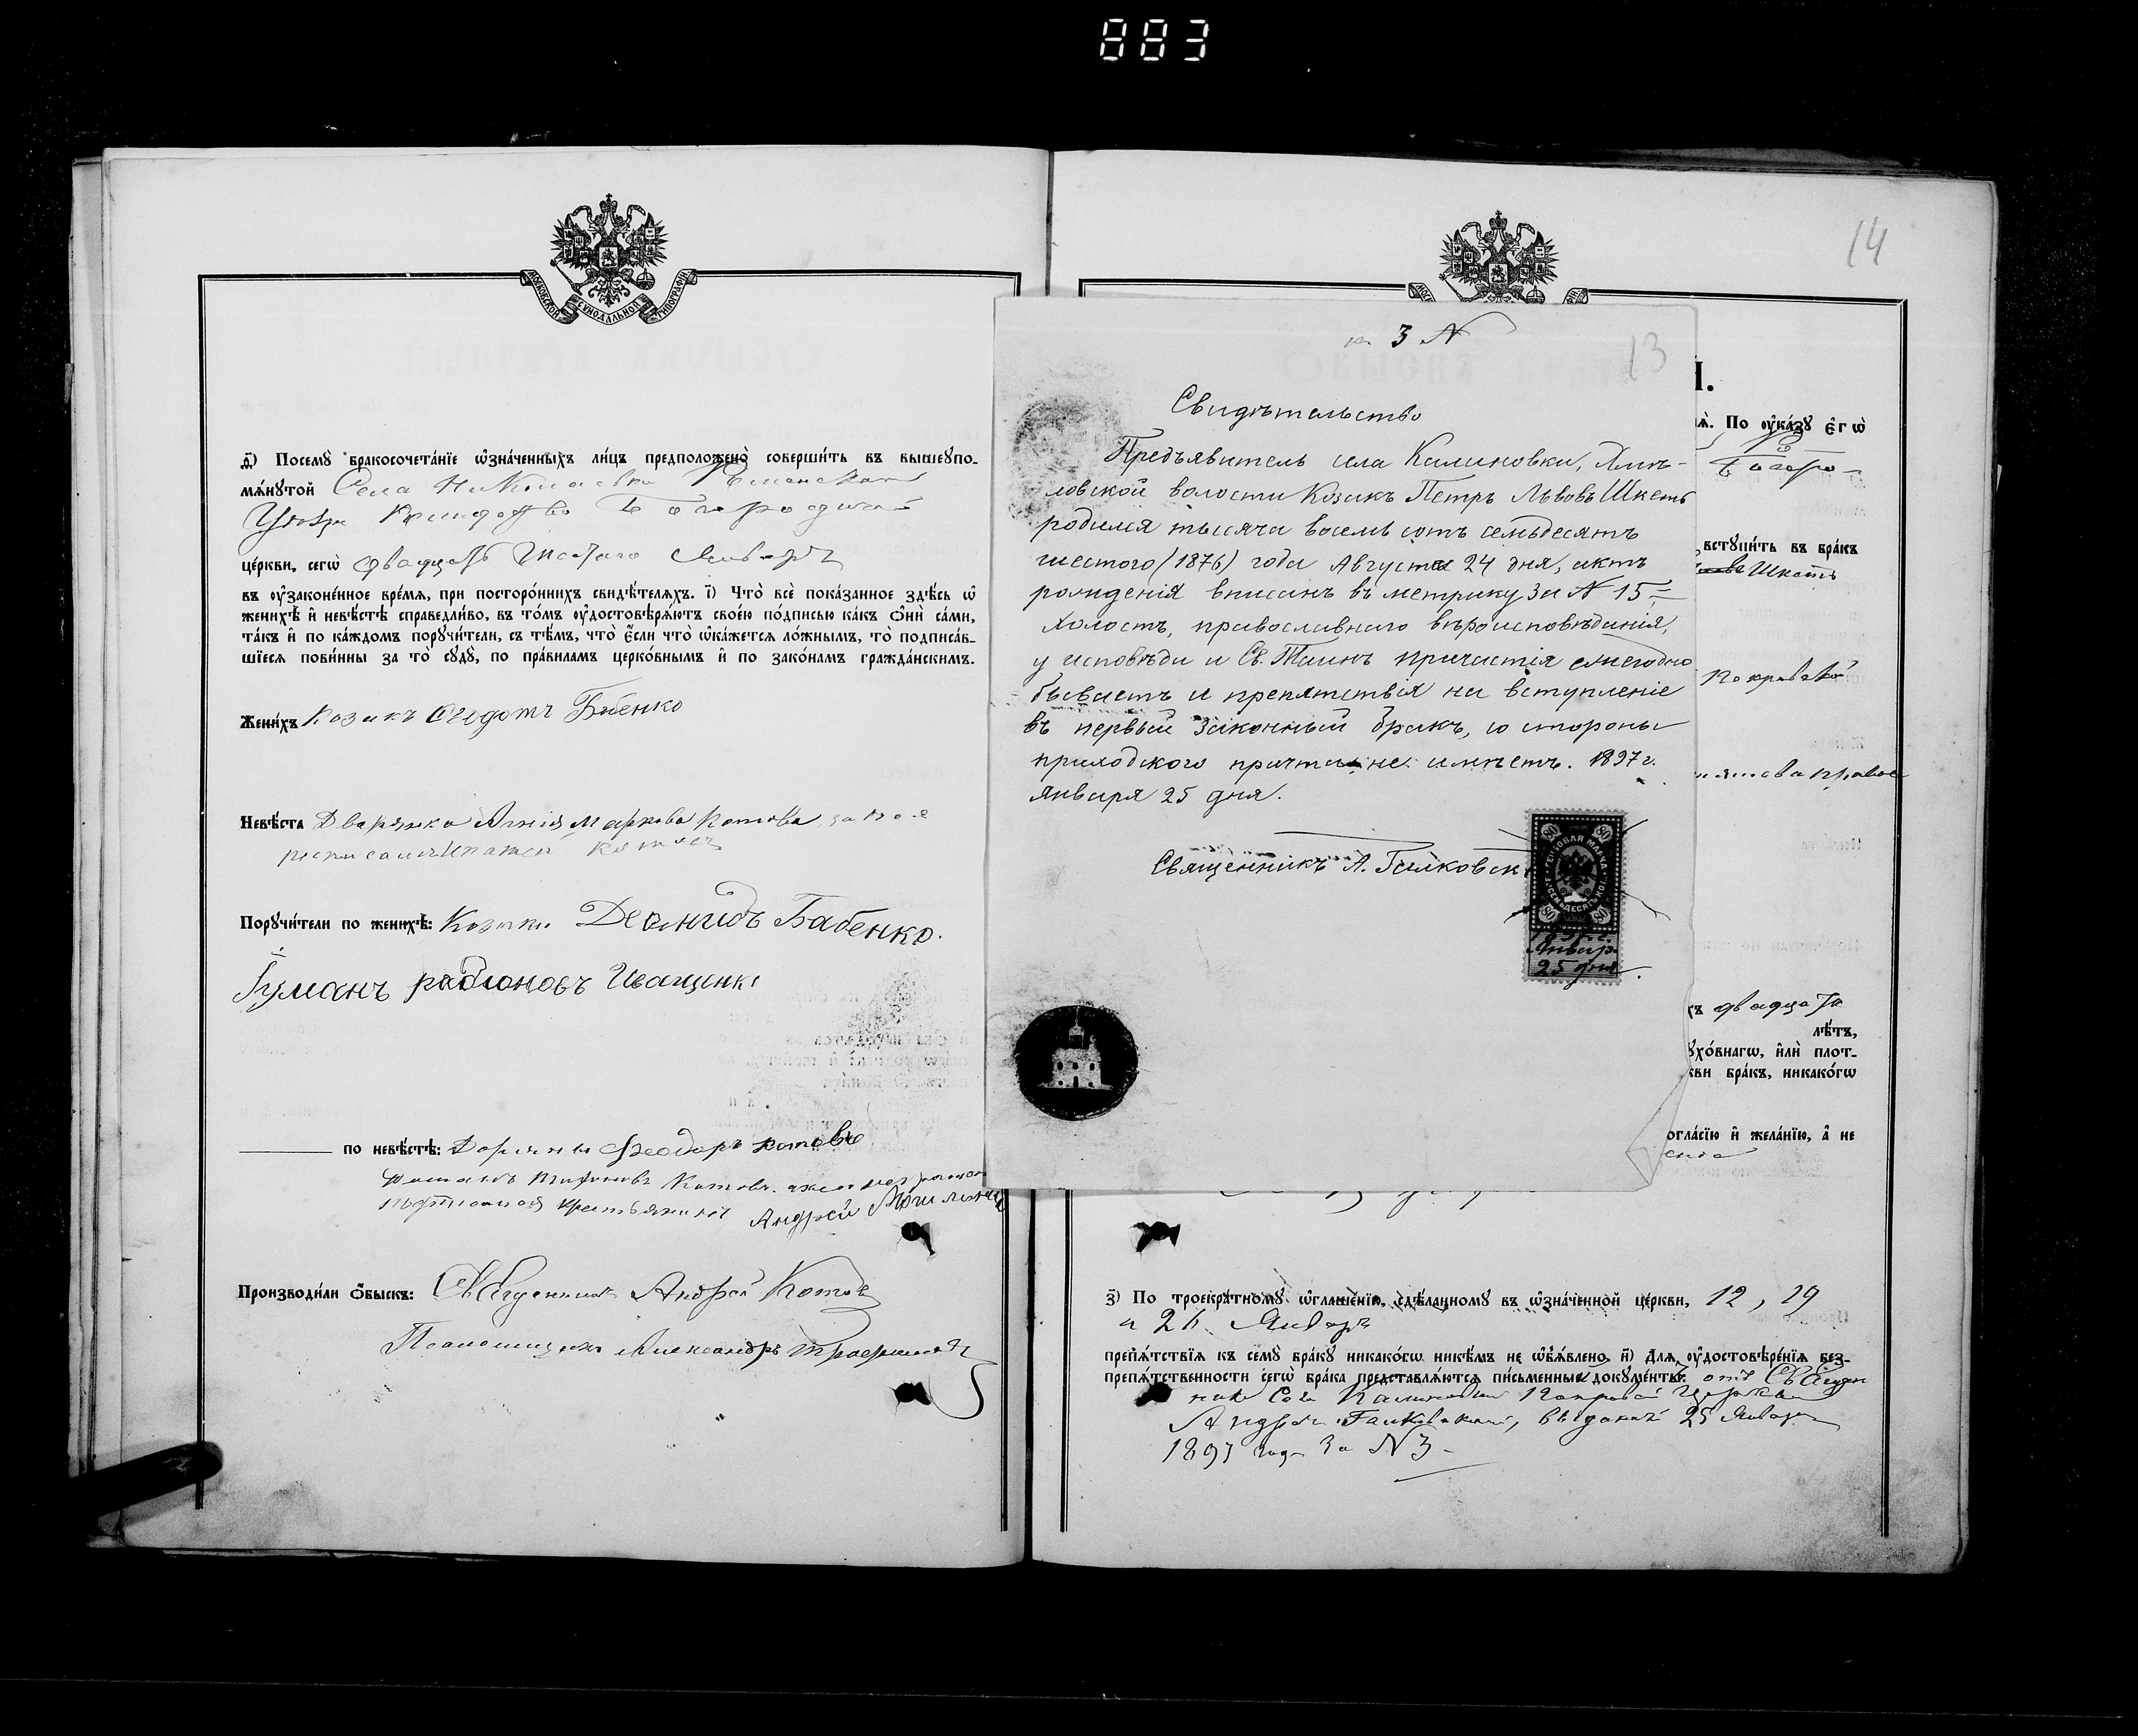 883
МОСКОВСКОЙ СѴНОДАЛЬНОЙ ТИПОГРАФІИ
ѳ҃) Посемꙋ̀ бракосочета́нїе ѡ҆зна́ченныхъ ли́цъ предположено̀ соверши́ть въ вышеꙋпо-
мѧ́нꙋтой Села Николаевки
Рождество Богородичной
це́ркви, сегѡ̀ двадцать шестаго Января
въ ᲂу҆зако́ненное вре́мѧ, при посторо́ннихъ свидѣ́телѧхъ. і҃) Что̀ всѐ пока́занное здѣ́сь ѡ҆
женихѣ̀ и҆ невѣ́стѣ справедли́во, въ то́мъ ᲂу҆достовѣрѧ́ютъ свое́ю по́дписью ка́къ ѻ҆нѝ са́ми,
та́къ и҆ по ка́ждомъ порꙋчи́тели, съ тѣ́мъ, что̀ є҆́сли что̀ ѡ҆ка́жется ло́жнымъ, то̀ подписа́в-
шїеся пови́нны за то̀ сꙋдꙋ̀, по пра́виламъ церко́внымъ и҆ по зако́намъ гражда́нскимъ.
Жени́хъ Козакъ Ѳеодотъ Бабенко
Невѣ́ста Дворянка Маркова Котова
Порꙋчи́тели по женихѣ̀: Козаки Леонидъ Бабенко.
Гуманъ радионовъ Иващенко
по невѣ́стѣ: Дворяны Ѳеодоръ Котовъ
Котовъ
крестьянинъ Андрей
Производи́ли ѻ҆́быскъ: Священникъ Андрей Котовъ
Псаломщикъ Александръ
14
13
№ 3
Свидѣтельство
Предъявитель села Калиновки, Хмѣ-
ловской волости Козакъ Петръ Львовъ Шкетъ
родился тысяча восемь сотъ семьдесятъ
шестого (1876) года Августа 24 дня, актъ
рожденія вписанъ въ метрику за № 15,
Холостъ, православнаго вѣроисповѣданія,
у исповѣди и Св. Таинъ причастія ежегодно
бываетъ и препятствія на вступленіе
въ первый законный бракъ, со стороны
приходского причта, не имѣетъ. 1897 г.
Января 25 дня.
Священникъ А. Галковск
ГЕРБОВАЯ МАРКА
ВОСЕМЬДЕСЯТЪ КОП.
80 80
80 80
1897 г.
Январ.
25 дня
По ᲂу҆ка́зꙋ є҆гѡ̀
Богоро-
встꙋпи́ть въ бра́къ
Шкетъ
Покровской
двадцать
лѣ́тъ,
ꙋхо́внагѡ, и҆лѝ плот-
кви бра́къ, никако́гѡ
огла́сїю и҆ жела́нїю, а҆ не
з҃) По троекра́тномꙋ ѡ҆глаше́нїю, сдѣ́ланномꙋ въ ѡ҆зна́ченной це́ркви, 12, 19
и 26 Января
препѧ́тствїѧ къ семꙋ̀ бра́кꙋ никако́гѡ никѣ́мъ не ѡ҆бѧ́влено. и҃) Для ᲂу҆достовѣре́нїѧ без-
препѧ́тственности сегѡ̀ бра́ка представлѧ́ются пи́сьменныѧ докꙋме́нты: отъ Священ
ника Села Калиновки Покровской Церкви
Андрея Галковскаго, выданъ 25 Января
1897 года за № 3